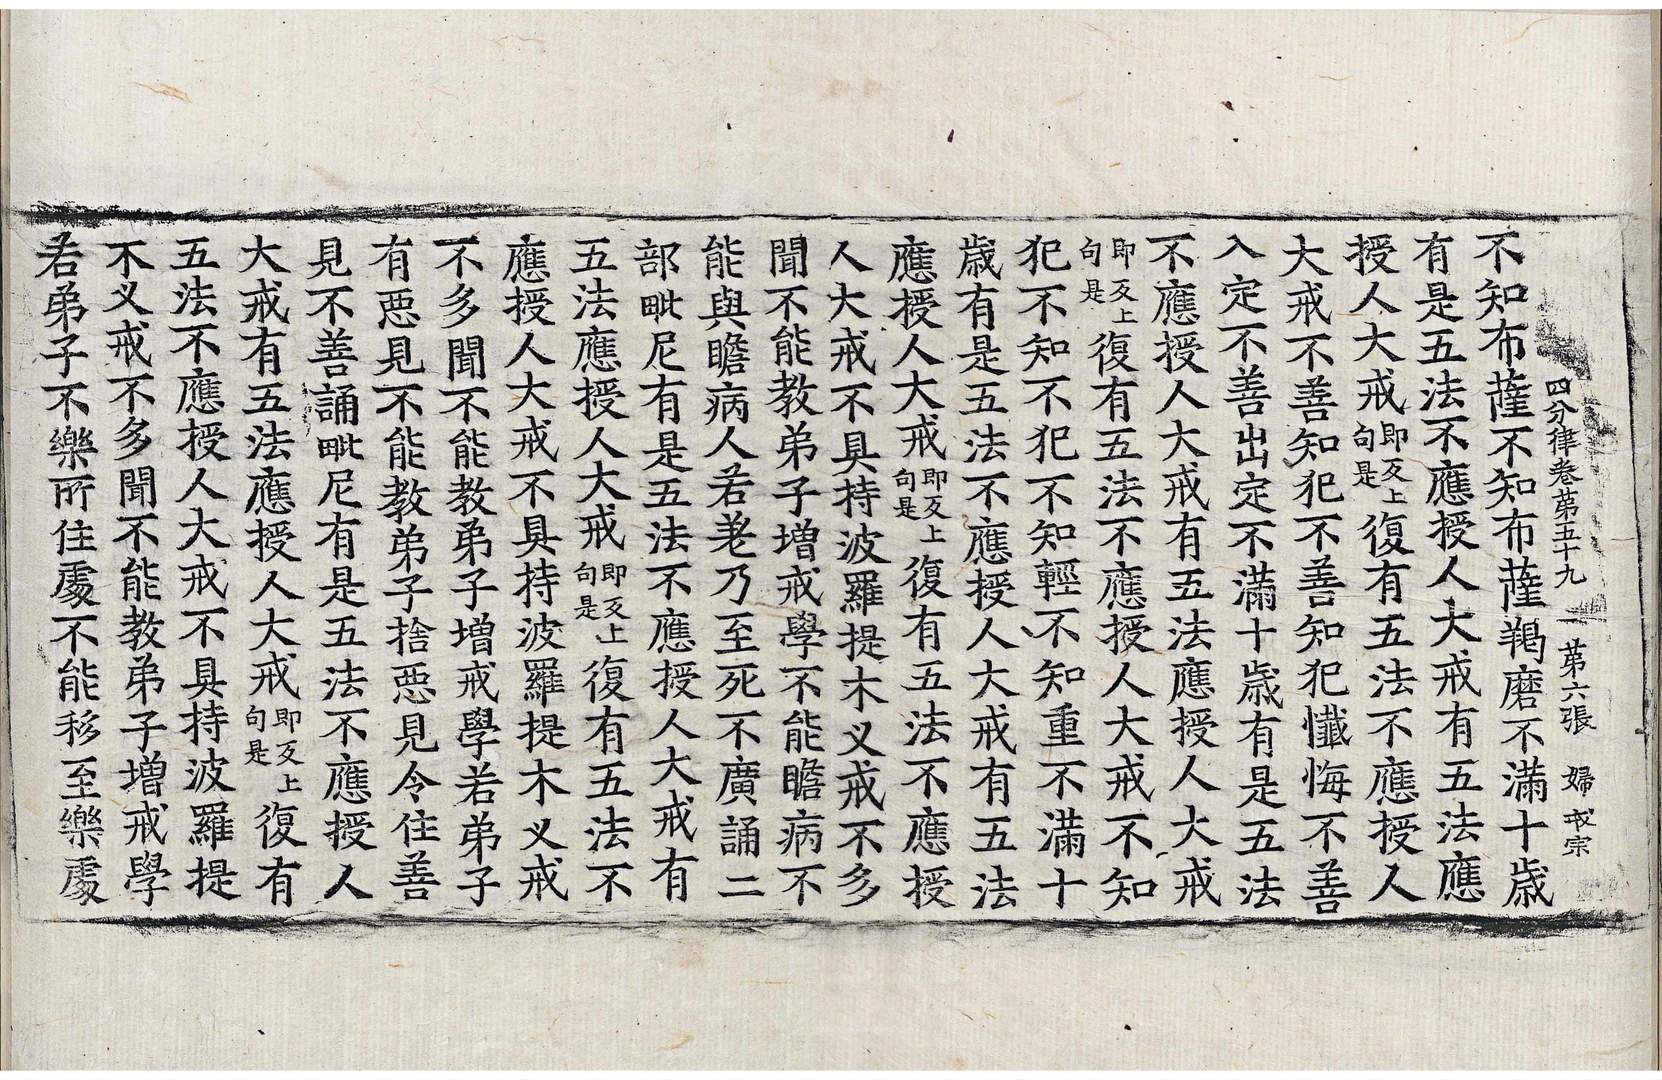 四分律卷苐五十九 苐六張 婦 宗
不知布薩不知布薩羯磨不滿十歲
有是五法不應授人大戒有五法應
授人大戒即反上句是復有五法不應授人
大戒不善知犯不善知犯懺悔不善
入定不善出定不滿十歲有是五法
不應授人大戒有五法應授人大戒
即反上句是復有五法不應授人大戒不知
犯不知不犯不知輕不知重不滿十
歲有是五法不應授人大戒有五法
應授人大戒即反上句是復有五法不應授
人大戒不具持波羅提木叉戒不多
聞不能教弟子增戒學不能瞻病不
能與瞻病人若差乃至死不廣誦二
部毗尼有是五法不應授人大戒有
五法應授人大戒即反上句是復有五法不
應授人大戒不具持波羅提木叉戒
不多聞不能教弟子增戒學若弟子
有惡見不能教弟子捨惡見令住善
見不善誦毗尼有是五法不應授人
大戒有五法應授人大戒即反上句是復有
五法不應授人大戒不具持波羅提
木叉戒不多聞不能教弟子增戒學
若弟子不樂所住處不能移至樂處